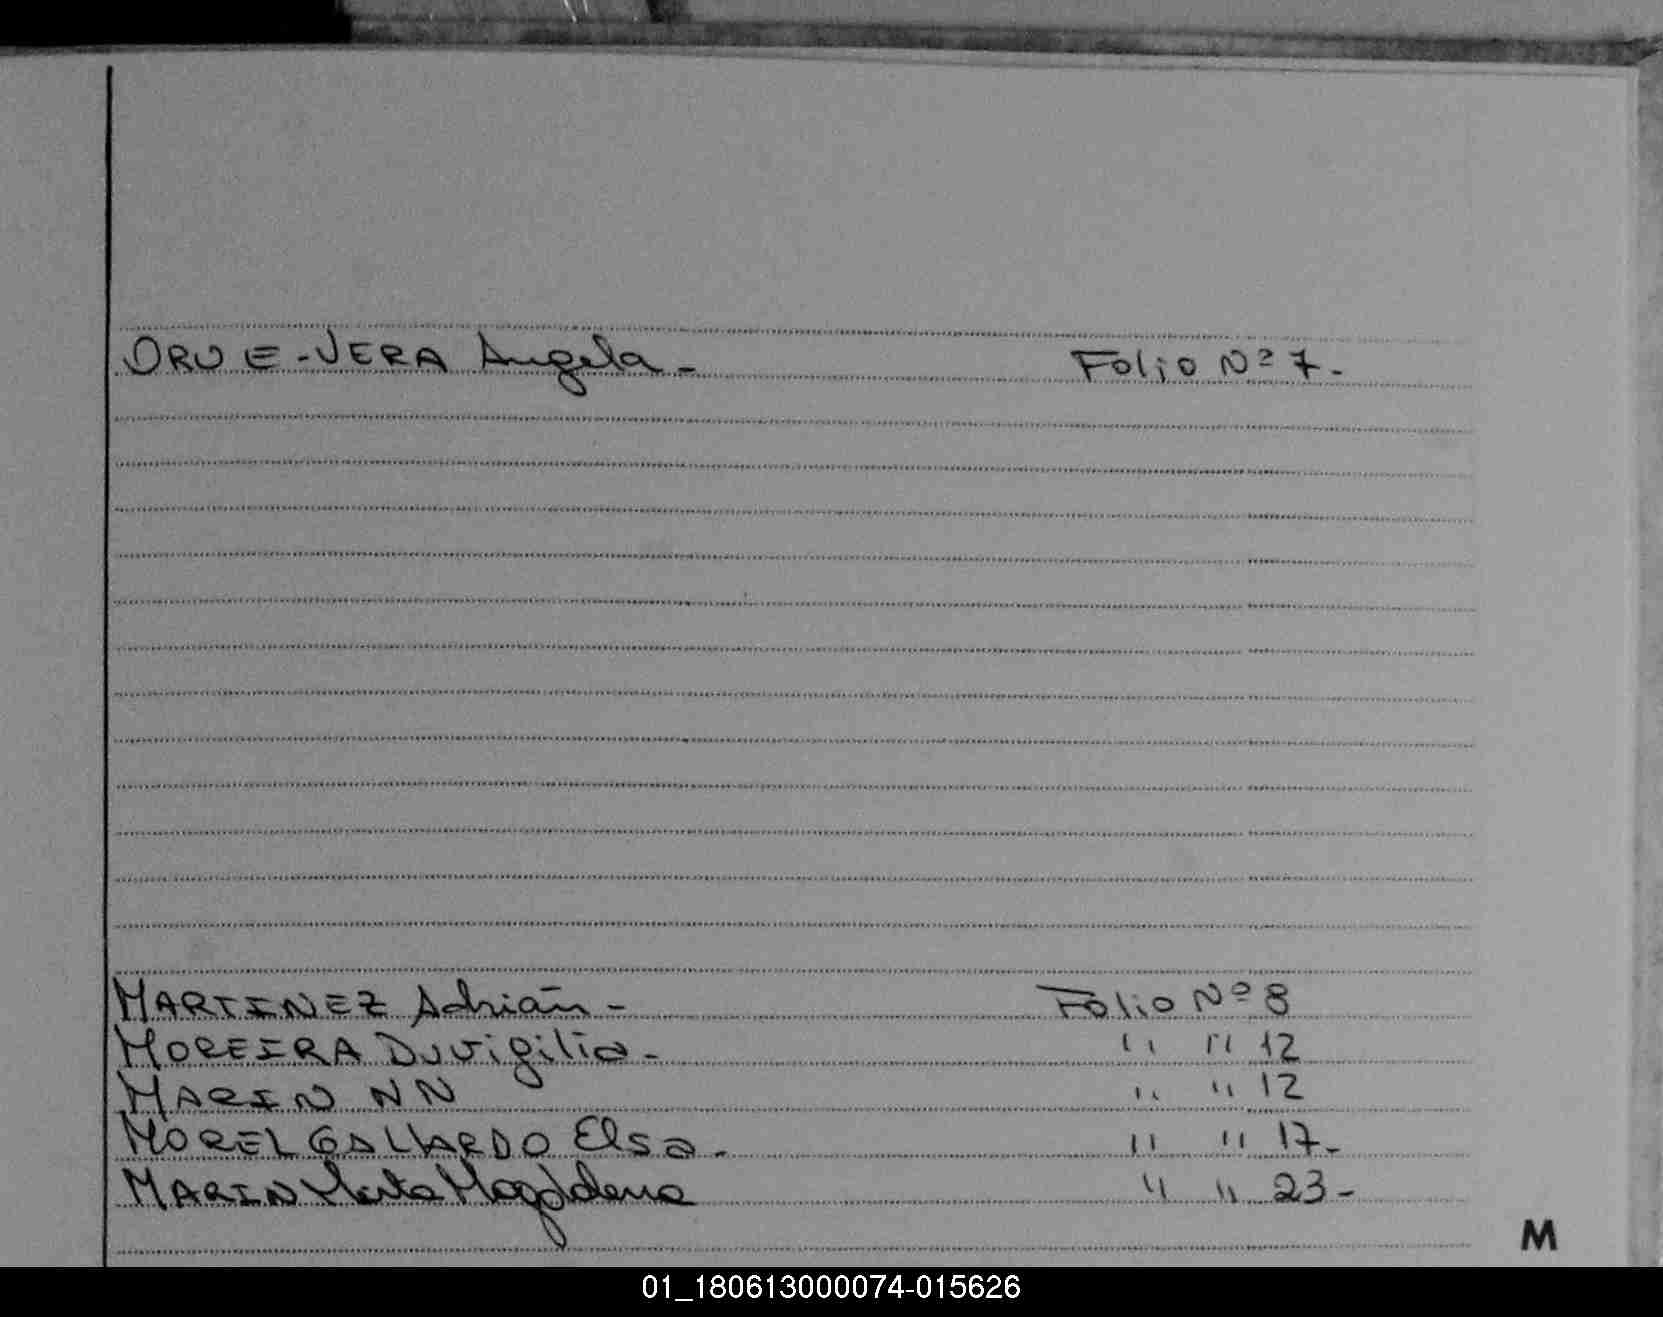 ORUE-VERA Angela- Folio Nº 7.-
MARTINEZ Adrián- Folio Nº 8
MOREIRA Duvigilia- " " 12
MARIN NN " " 12
MOREL GALLARDO Elsa- " " 17-
MARIN Marta Magdalena " " 23-
M
01_180613000074-015626